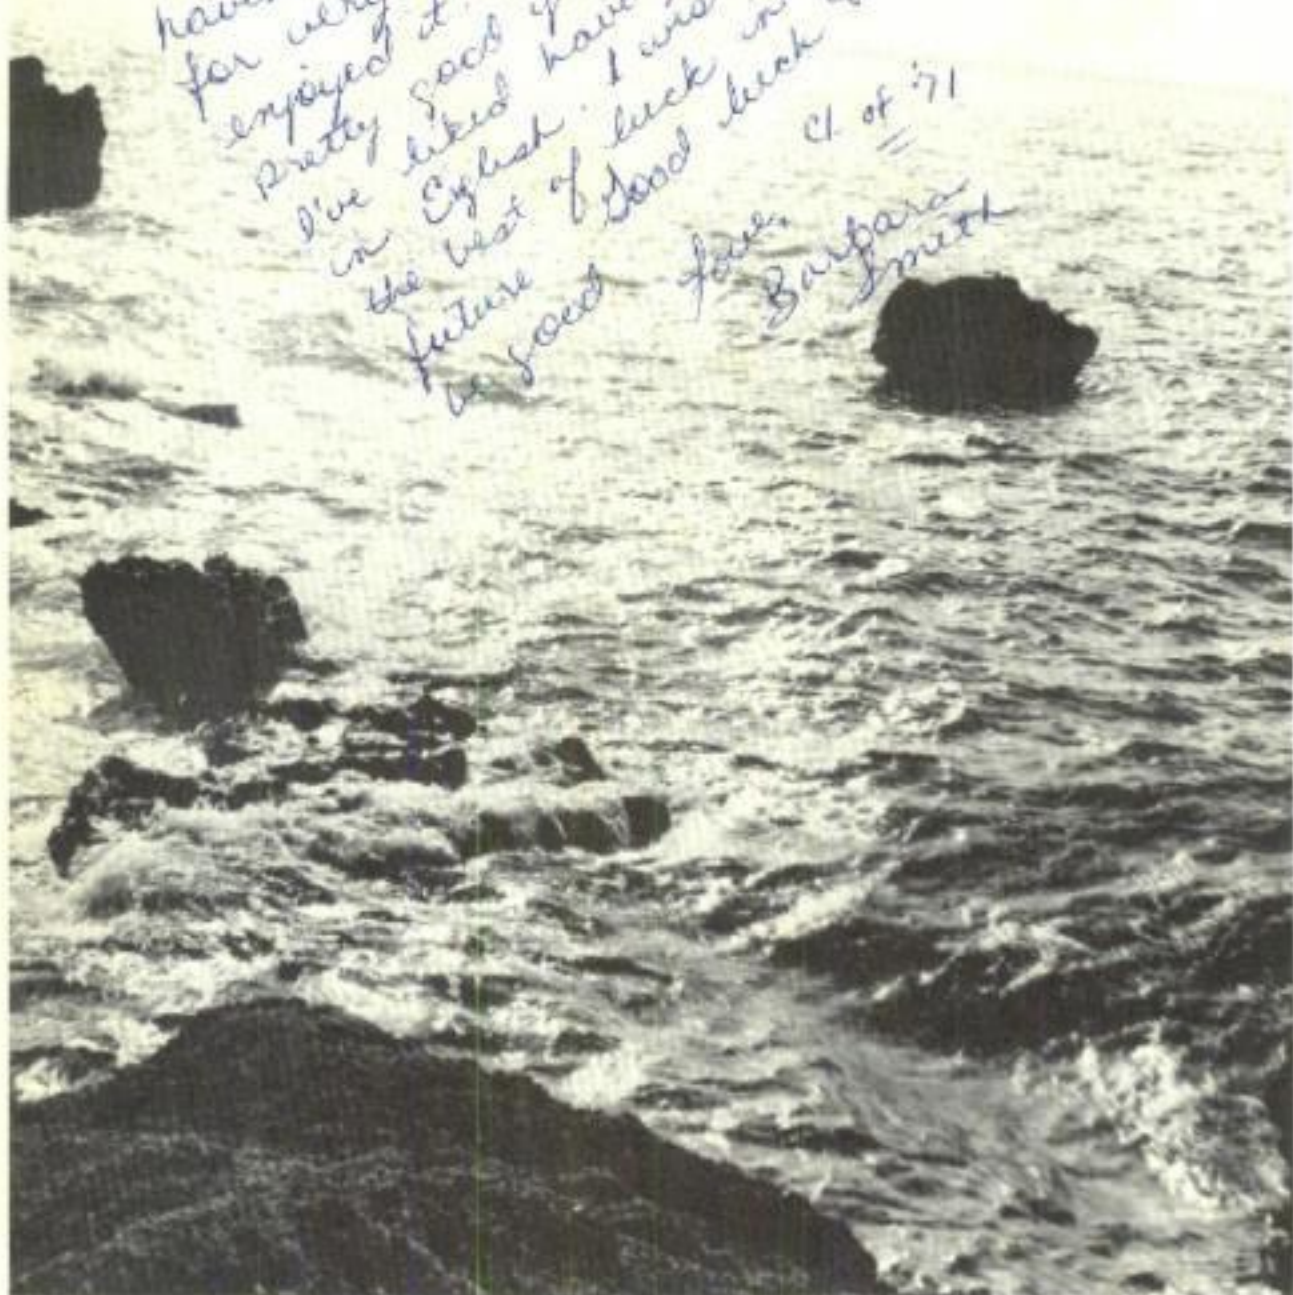 for very
enjoyed it.
pretty good
I've liked have
in English. I wis
the best of luck in
future. Good luck
be good
Cl of '71
Love,
Barbara
Smith